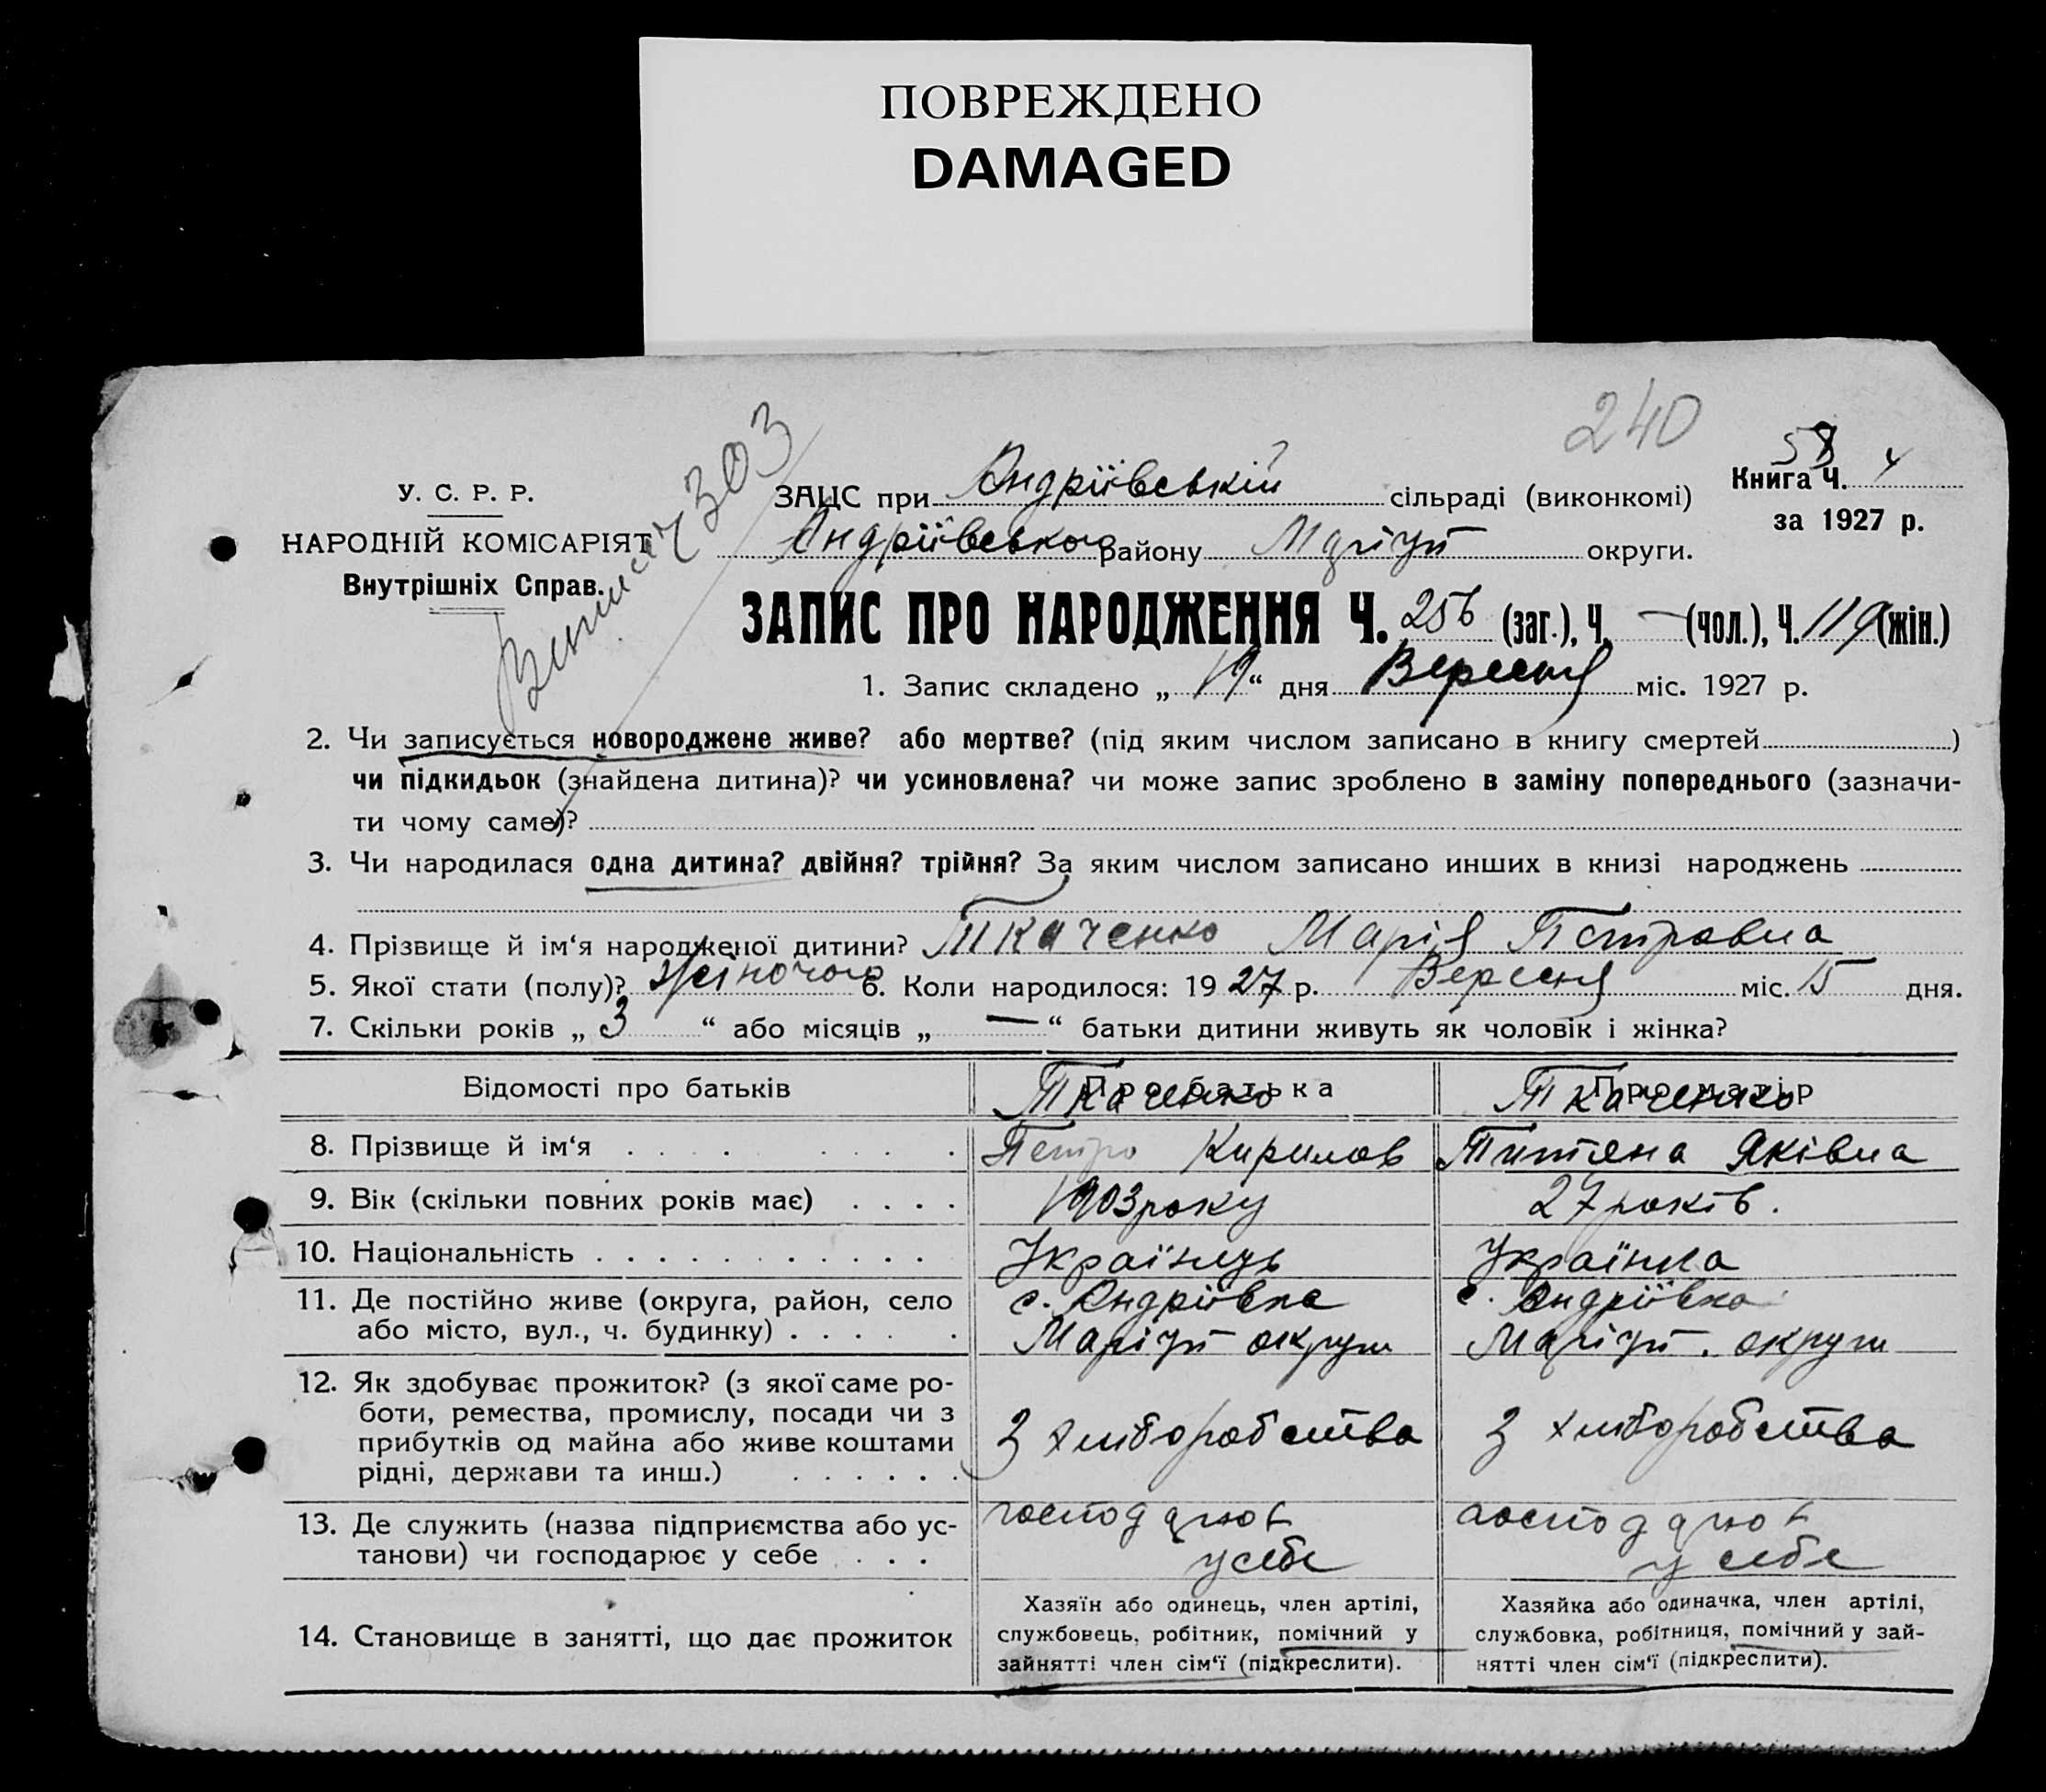 ПОВРЕЖДЕНО
DAMAGED
240
58 4
У. С. Р. Р.
НАРОДНІЙ КОМІСАРІЯТ
Внутрішніх Справ.
303
ЗАЦС при Андріївській сільраді (виконкомі)
Книга Ч.
за 1927 р.
Андріївського району Маріуп округи.
ЗАПИС ПРО НАРОДЖЕННЯ Ч. 256 (заг.), Ч. — (чол.), Ч. 119 (жін.)
1. Запис складено „ 19 “ дня Вересня міс. 1927 р.
2. Чи записується новороджене живе? або мертве? (під яким числом записано в книгу смертей )
чи підкидьок (знайдена дитина)? чи усиновлена? чи може запис зроблено в заміну попереднього (зазначи-
ти чому саме)?
3. Чи народилася одна дитина? двійня? трійня? За яким числом записано инших в книзі народжень
4. Прізвище й ім‘я народженої дитини? Ткаченко Марія Петровна
5. Якої стати (полу)? жіночого 6. Коли народилося: 1927 р. Вересня міс. 15 дня.
7. Скільки років „ 3 “ або місяців „ — “ батьки дитини живуть як чоловік і жінка?
Відомості про батьків Про батька Про матір
Ткаченко Ткаченко
8. Прізвище й ім‘я . . . . . . . Петро Кирилов Титяна Яківна
9. Вік (скільки повних років має) . . . . 1903 року 27 років.
10. Національність . . . . . . . . . . . Українець Українка
11. Де постійно живе (округа, район, село с. Андріївка с. Андріївка
або місто, вул., ч. будинку) . . . . . Маріуп округи Маріуп. округи
12. Як здобуває прожиток? (з якої саме ро-
боти, ремества, промислу, посади чи з
прибутків од майна або живе коштами З хліборобства З хліборобства
рідні, держави та инш.) . . . . . .
13. Де служить (назва підприємства або ус-
танови) чи господарює у себе . . . . у себе у себе
14. Становище в занятті, що дає прожиток
Хазяїн або одинець, член артілі,
службовець, робітник, помічний у
зайнятті член сім‘ї (підкреслити).
Хазяйка або одиначка, член артілі,
службовка, робітниця, помічний у зай-
нятті член сім‘ї (підкреслити).